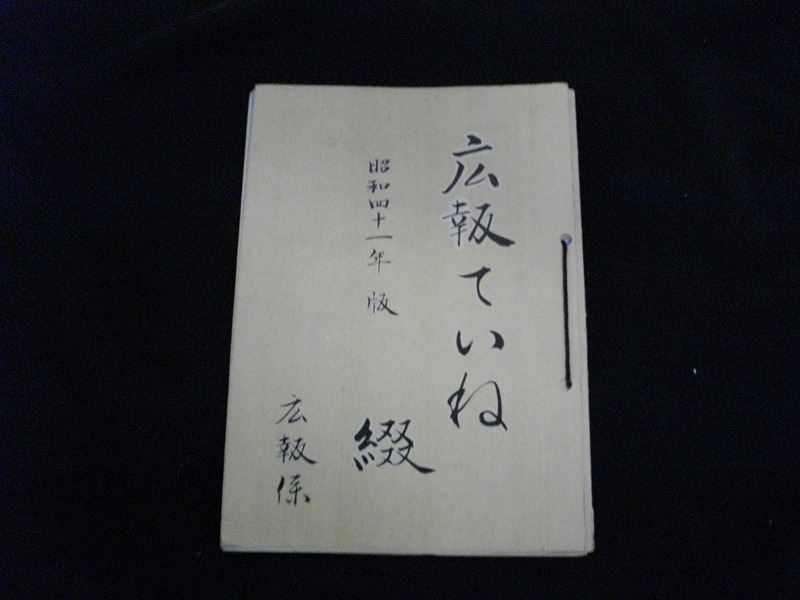 広報ていね
綴
昭和四十一年版
広報係